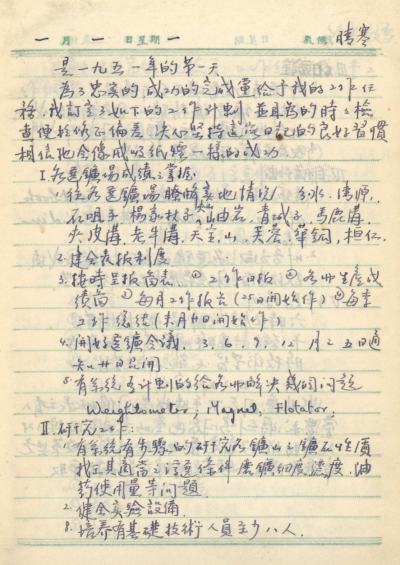 一月 一日 星期 一 氣候 晴寒
是一九五一年的第一天
為了忠实的成功的完成党给予我的工作任
務,我訂立了以下的工作計劃,並且為的時々檢
查便於修正偏差,決心堅持這次日記的良好習慣
相信他会像成〇紙烟一樣的成功
I 各選鑛場成績之掌握
1. 往各選鑛場瞭解其地情況 分水,清源,
石咀子 楊家杖子 岫岩,青城子,馬鹿溝,
夹皮溝,老牛溝,天宝山,芙蓉,華銅,桓仁.
2. 建立表报制度
3. 按時呈报簡表. ①工作日报 ②各〇生産成
績簡 ③每月工作报告(25日開始作)④每季
工作總結(来月廿日開始作)
4. 開好選鑛会議, 3. 6. 9. 12月 25日通
知 廿日召開
5. 有系統有計劃的给各〇解決幾個问題
Weightometer, Magnet, Flotator,
II. 研究工作:
1. 有系統有步驟的研究各鑛山之鑛石性質
找正其適當之浮選條件 磨鑛細度,濃度,油
药使用量等问題
2. 健全实驗設備.
8. 培养有基礎技術人員至少八人.